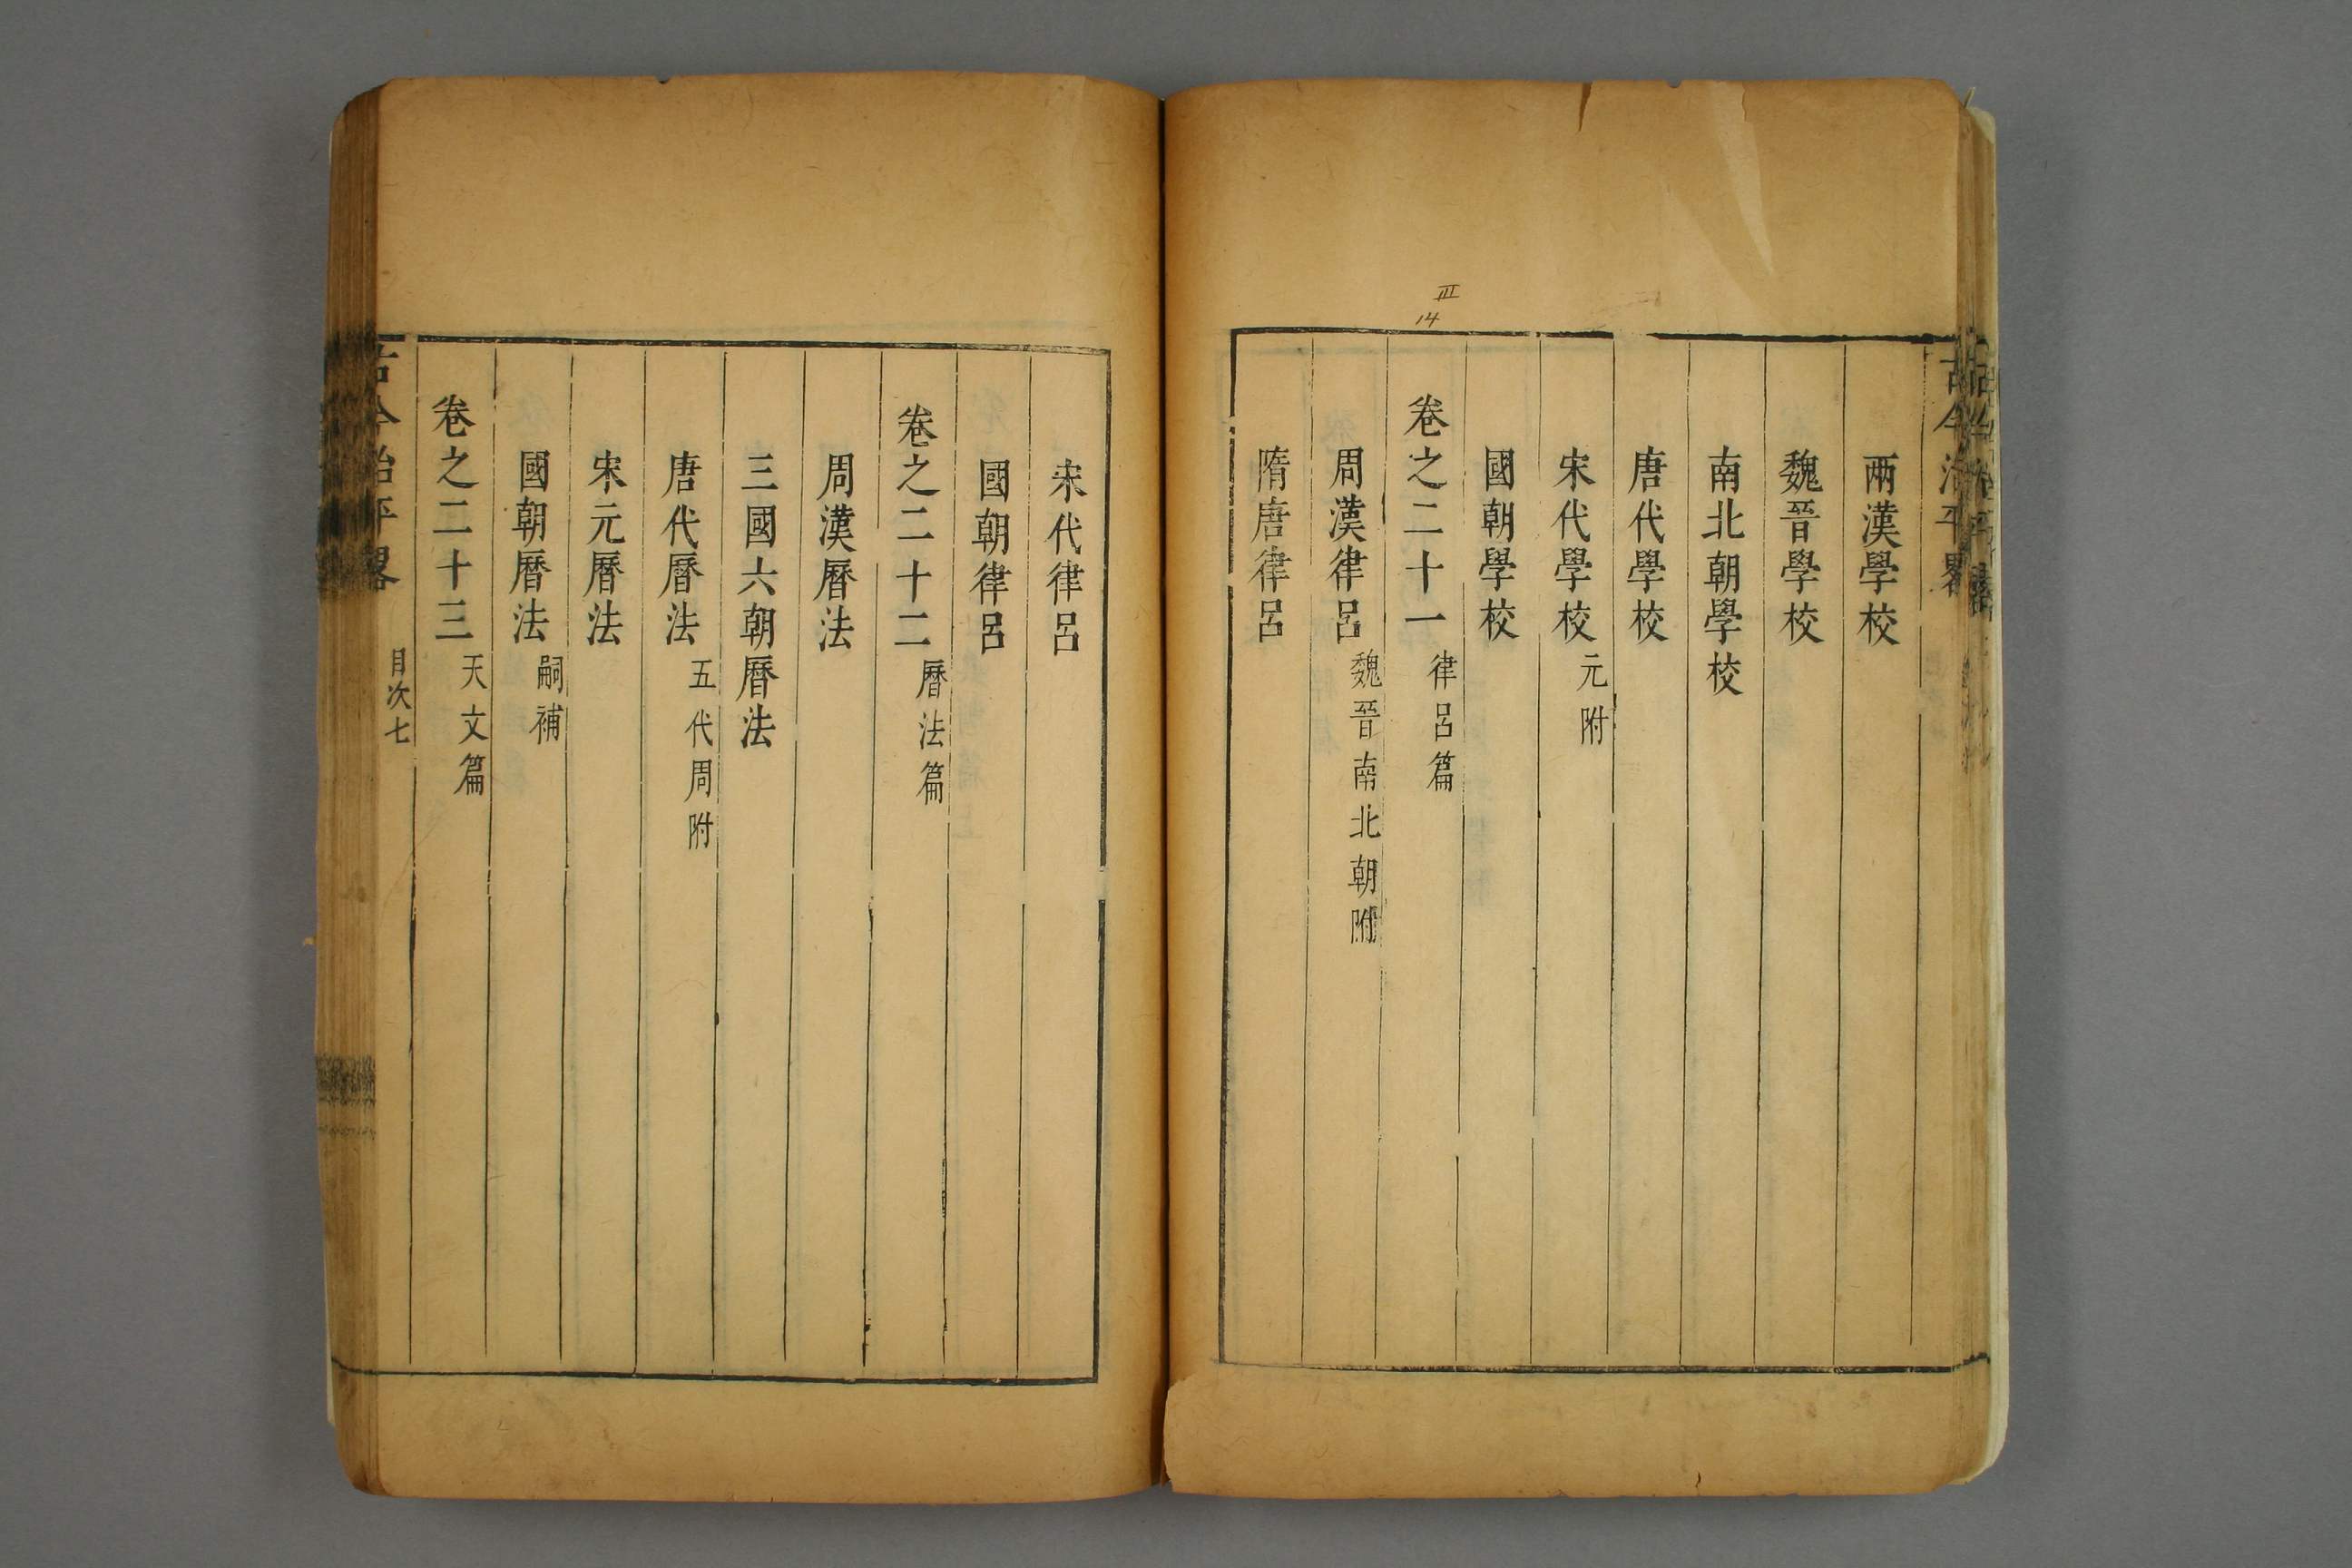 古今治平畧
兩漢學校
魏晉學校
南北朝學校
唐代學校
宋代學校 元附
國朝學校
卷之二十一 律呂篇
周漢律呂 魏晉南北朝附
隋唐律呂
III
14
宋代律呂
國朝律呂
卷之二十二 曆法篇
周漢曆法
三國六朝曆法
唐代曆法 五代周附
宋元曆法
國朝曆法 嗣補
卷之二十三 天文篇
古今治平畧 目次 七